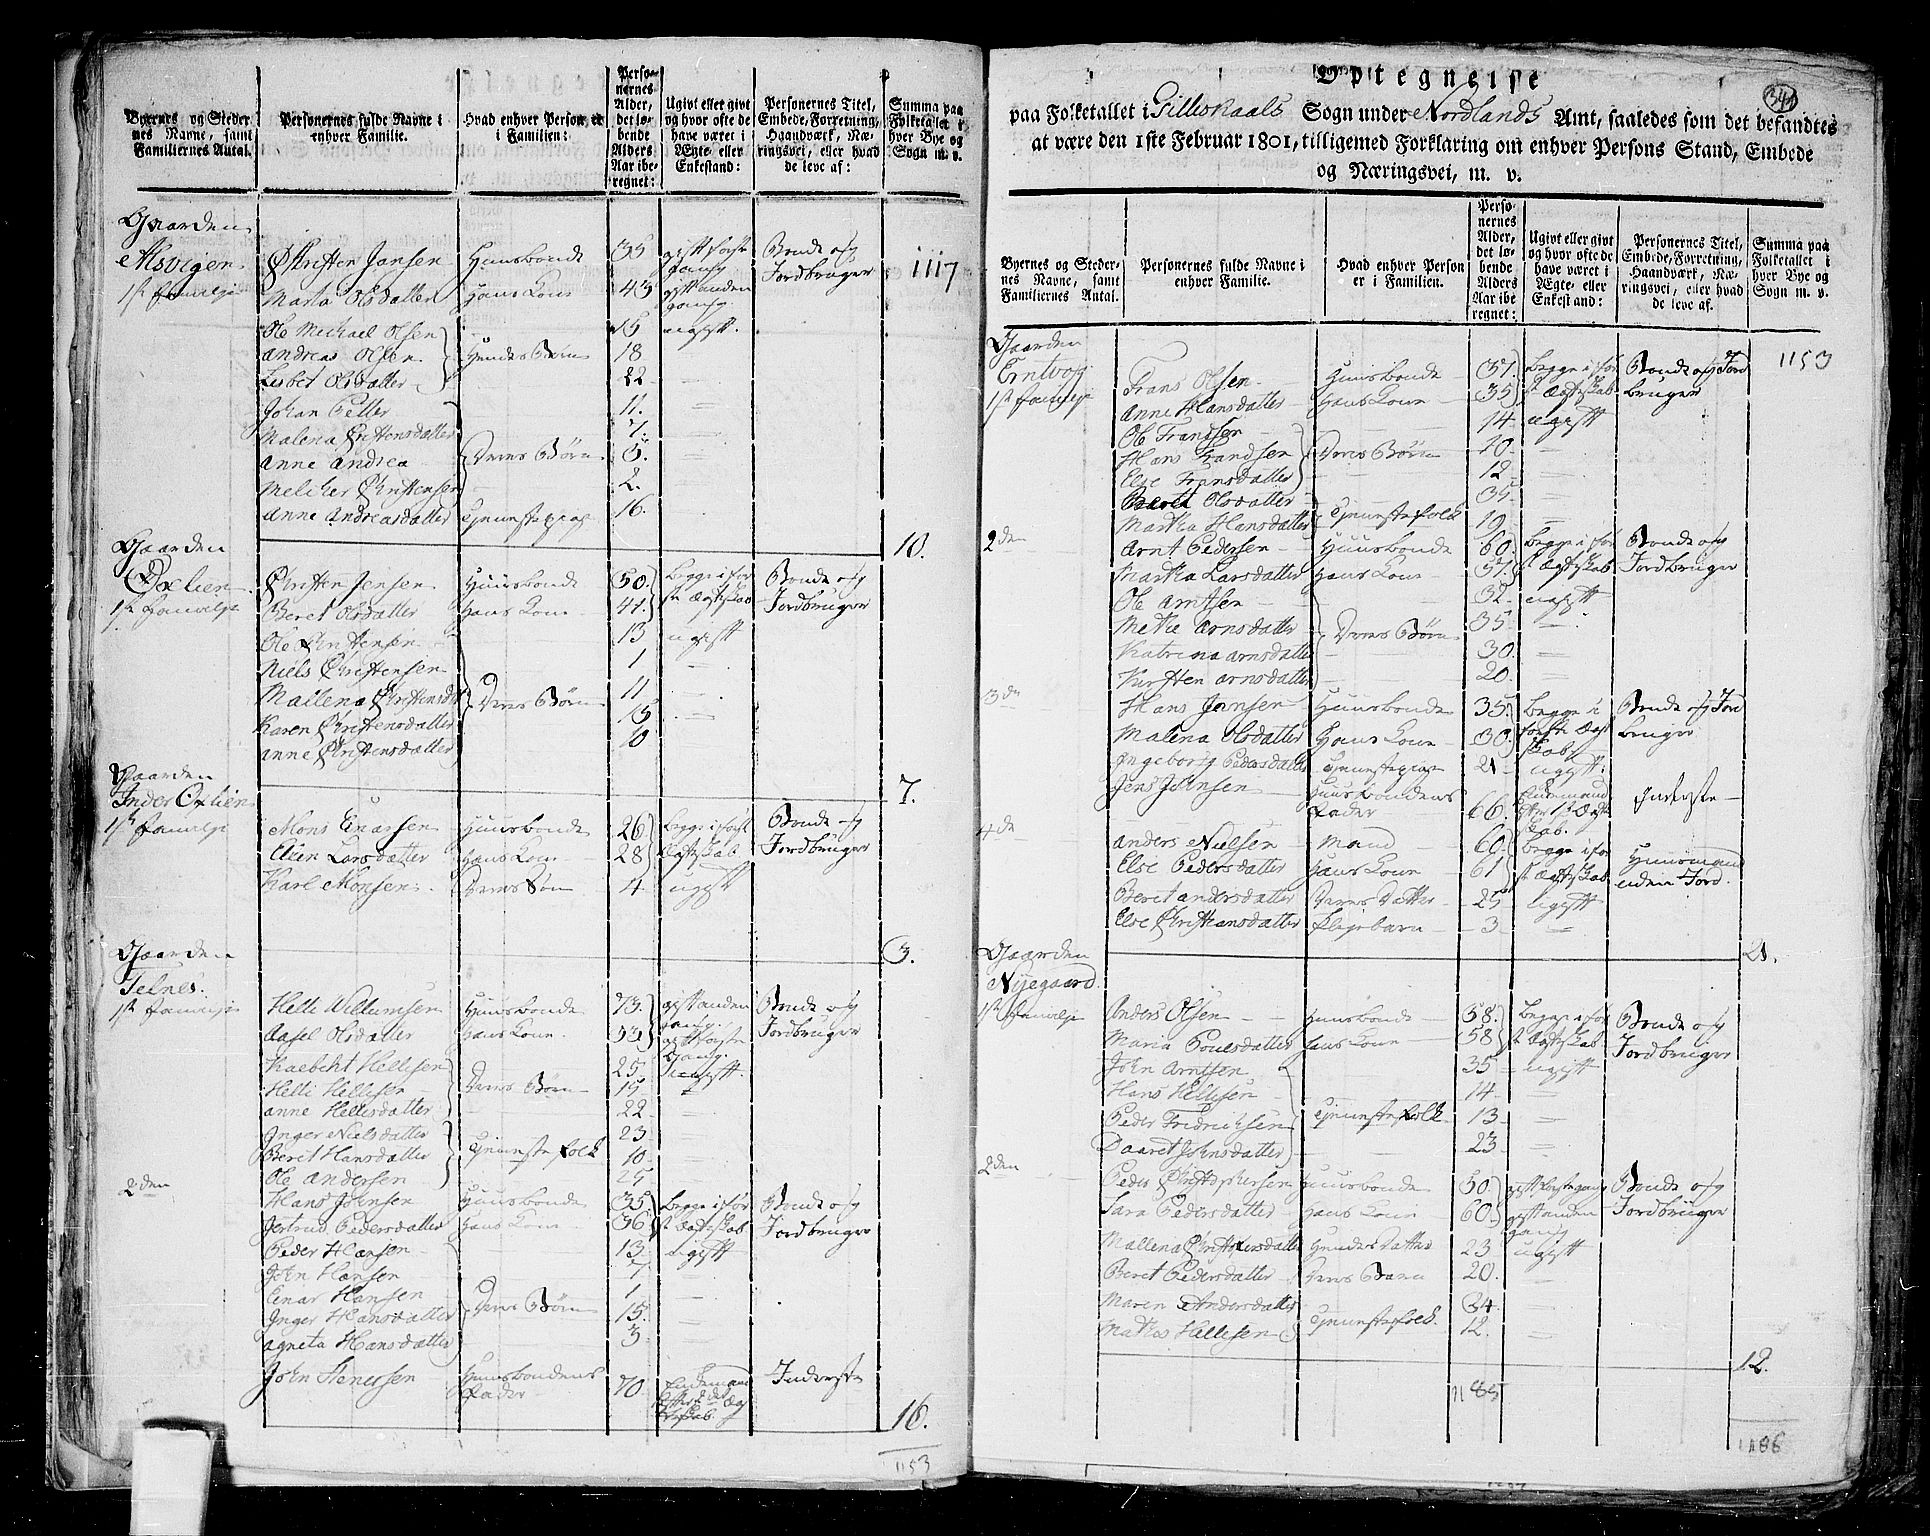 Byernes og Steder
nes Navne, samt
Familiernes Antal.
Personernes fulde Navne i
enhver Familie.
Hvad enhver Person er
i Familien:
Perso-
nernes
Alder,
det lø-
bende
Alders
Aar ibe-
regnet:
Ugivt eller givt
og hvor ofte de
have været i
Ægte- eller
Enkestand:
Personernes Titel,
Embede, Forretning,
Haandværk, Næ-
ringsvei, eller hvad
de leve af:
Summa paa
Folketallet i
hver Bye og
Sogn m. v.
Gaarden
Alsvigen
1ste familje
Christen Jansen Huusbonde 35 gift første gang Bonde og Jordbruger 1117
Marta Olsdatter Hans Kone 43 gift anden gang
Ole Michael Olsen 15 ugift.
Andreas Olsen Hendes Børn 18
Lisbet Olsdatter 22
Johan Petter 11.
Malena Christensdatter 7.
Anne Andrea Deres Børn 5.
Melcher Christensen 2.
Anne Andreasdatter Tjenestepige 16.
10.
Gaarden
Oxlien
1ste familje
Christen Jensen Huusbonde 50. Begge i før Bonde og
Beret Olsdatter Hans Kone 41. ste Ægteskab Jordbruger
Ole Christensen 13 ugift
Niels Christensen 1
Mallena Christensdt Deres Børn 11
Karen Christensdatter 15
Anne Christensdatter 10
7.
Gaarden
Inder Oxlien
1ste familje
Mons Enarsen Huusbonde 26 Begge i først Bonde og
Elen Larsdatter Hans Kone 28 Ægteskab Jordbruger
Karl Monsen Deres Søn 4 ugift
3.
Gaarden
Telnes.
1ste familje
Helli Willumsen Huusbonde 73. gift anden gang. Bonde og
Aasel Olsdatter Hans Kone 53 gift første gang. Jordbruger
Kaebcht Hellesen 25 ugift.
Helli Hellesen Deres Børn 15
Anne Hellisdatter 22
Inger Nielsdatter 23
Beret Hansdatter Tjenestefolk 10
Ole Andersen 25
2den
Hans Johnsen Huusbonde 35 Begge i før Bonde og
Jertrud Pedersdatter Hans Kone 36 st Ægteskab Jordbruger
Peder Hansen 13 ugift
John Hansen 7
Enar Hansen Deres Børn 1
Inger Hansdatter 15.
Agneta Hansdatter 3
John Stenersen Huusbondens Fader 70 Enkemand efter det Ægteskab. Inderste
16.
1153
341
Optegnelse
paa Folketallet i Gilleskaals Sogn under Nordlands Amt, saaledes som det befandtes
at være den 1ste Februar 1801, tilligemed Forklaring om enhver Persons Stand, Embede
og Næringsvei, m. v.
Byernes og Steder-
nes Navne, samt
Familiernes Antal.
Personernes fulde Navne i
enhver Familie.
Hvad enhver Person
er i Familien.
Perso-
nernes
Alder,
det lø-
bende
Alders
Aar ibe
regnet:
Ugivt eller givt
og hvor ofte de
have været i
Ægte- eller
Enkestand:
Personernes Titel,
Embede, Forretning,
Haandværk, Næ-
ringsvei, eller hvad
de leve af.
Summa paa
Folketallet i
hver Bye og
Sogn m. v.
Gaarden
Erntvog
1ste familje
Frans Olsen Huusbonde 37. Begge i før Bonde og Jord 1153
Anne Hansdatter Hans Kone 35 st Ægteskab bruger
Ole Frandsen 14 ugift
Hans Frandsen Deres Børn 10
Else Fransdatter 12
Beret Olsdatter 35
Martha Hansdatter Tjenestefolk 19
2den
Arnt Pedersen Huusbonde 60. Begge i før Bonde og
Martha Larsdatter Hans Kone 57. st Ægteskab Jordbruger
Ole Arntsen 32 ugift
Methe Arnsdatter Deres Børn 35
Katrina Arnsdatter 30
Kirsten Arnsdatter 20
3de
Hans Jensen Huusbonde 35 Begge i Bonde og Jord
Malena Olsdatter Hans Kone 30. første Ægteskab bruger
Ingeborg Pedersdatter Tjenestepige 21 ugift.
Jens Johnsen Huusbondens Fader 66. Enkemand efter 1ste Ægteskab. Inderste
4de
Anders Nielsen Mand 60 Begge i før Huusmand
Else Pedersdatter Hans Kone 61 st Ægteskab uden Jord.
Beret Andersdatter Deres Datter 25 ugift
Else Christiansdatter Plejebarn 3
21.
Gaarden
Nyegaard
1ste familje
Anders Olsen Huusbonde 58. Begge i før Bonde og
Maria Poulsdatter Hans Kone 58 st Ægteskab Jordbruger
John Arnsen 35 ugift
Hans Hellesen 14
Peder Fredrichsen Tjenestefolk 13
Daaret Johnsdatter 23
2den
Peder Christophersen Huusbonde 50. gift første gang Bonde og
Sara Pedersdatter Hans Kone 60. gift anden gang Jordbruger
Mallena Christophersdatter Hendes Datter 23 ugift
Beret Pedersdatter Deres Barn 20
Maren Andersdatter 34
Mathis Hellesen Tjenestefolk 12.
12.
1185
1186